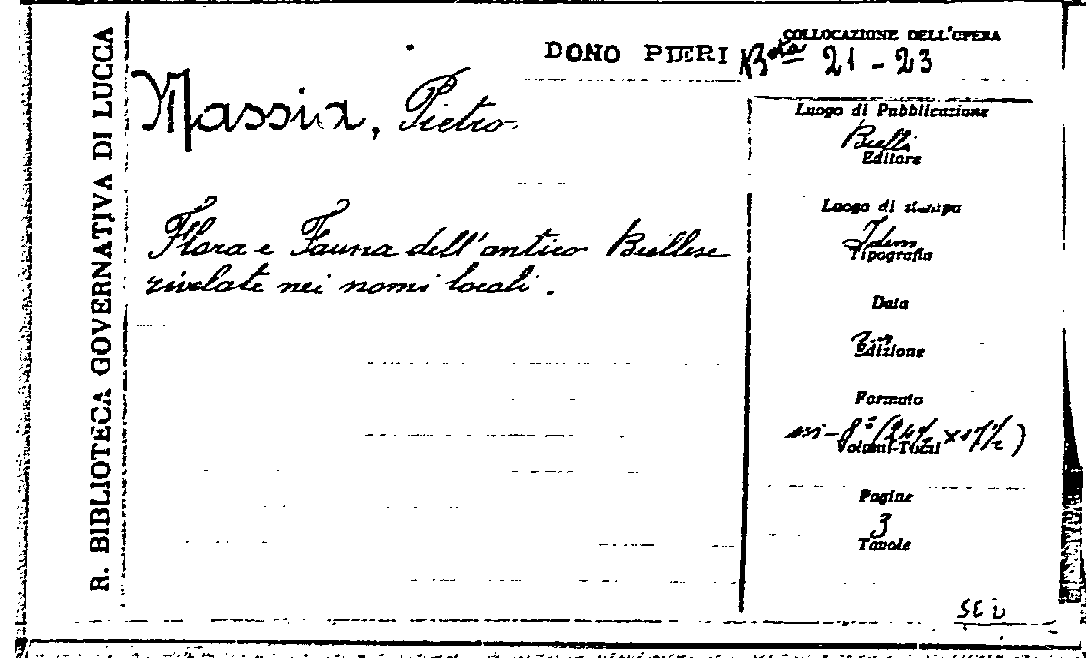 R. BIBLIOTECA GOVERNATIVA DI LUCCA
DONO PIERI
COLLOCAZIONE DELL'OPERA
21-23
Massia, Pietro
Flora e Fauna dell'antico Biellese
rivelate nei nomi locali.
Luogo di Pubblicazione
Editore
Luogo di stampa
Idem
Tipografia
Data
Edizione
Formato
Volumi-Tomi
Pagine
3
Tavole